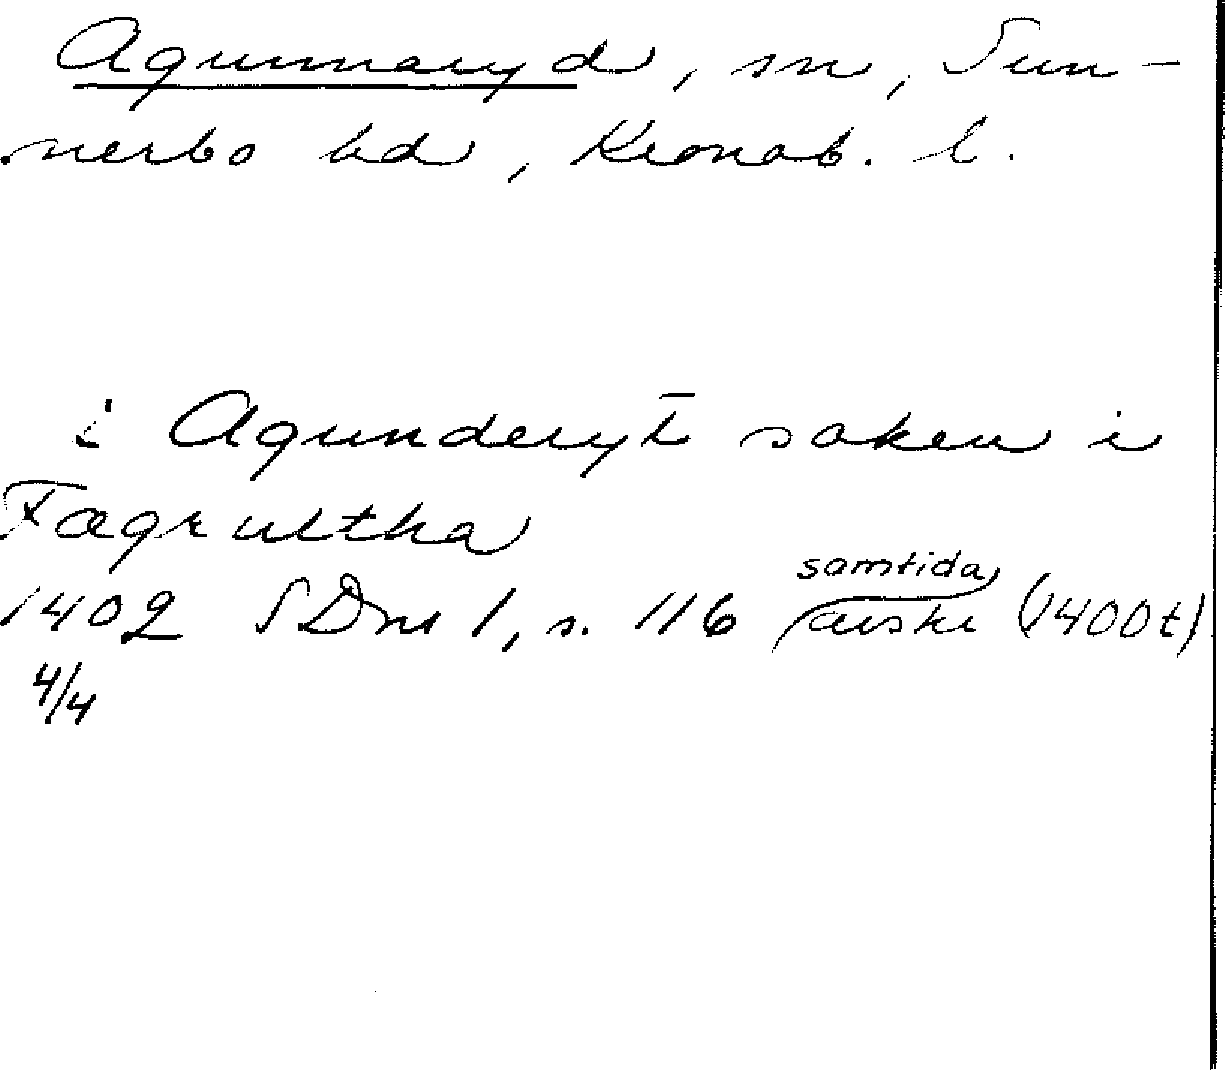 Agunnaryd, sn, Sun-
nerbo hd, Kronob. l.
i Agunderyt soken i
Fægrultha
samtida
1402 SDns 1, s. 116 avskr (1400t)
4/4